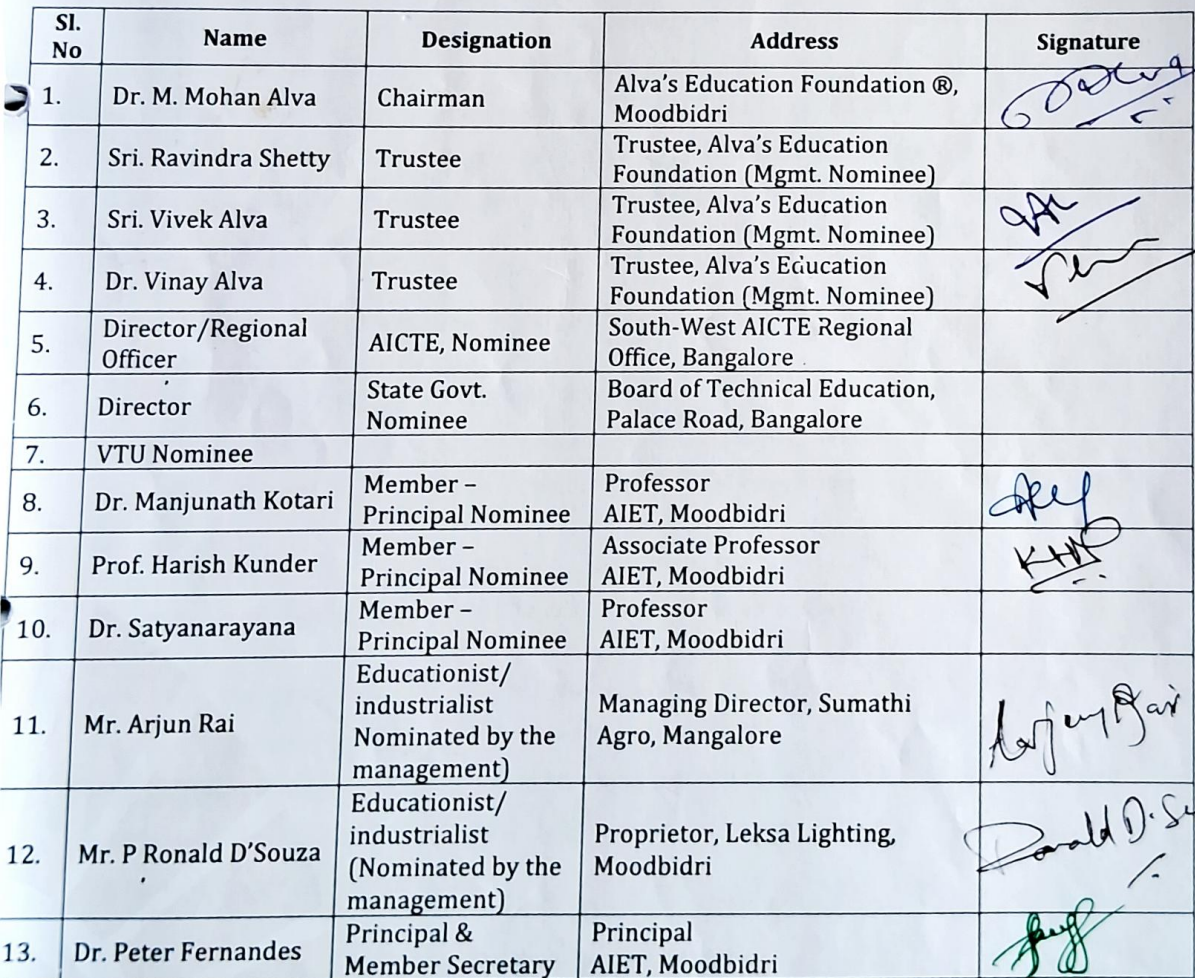 Sl. No Name Designation Address Signature
1. Dr. M. Mohan Alva Chairman Alva's Education Foundation ®,
Moodbidri
2. Sri. Ravindra Shetty Trustee Trustee, Alva's Education
Foundation (Mgmt. Nominee)
3. Sri. Vivek Alva Trustee Trustee, Alva's Education
Foundation (Mgmt. Nominee)
4. Dr. Vinay Alva Trustee Trustee, Alva's Education
Foundation (Mgmt. Nominee)
5. Director/Regional Officer AICTE, Nominee South-West AICTE Regional
Office, Bangalore
6. Director State Govt. Nominee Board of Technical Education,
Palace Road, Bangalore
7. VTU Nominee
8. Dr. Manjunath Kotari Member –
Principal Nominee Professor
AIET, Moodbidri
9. Prof. Harish Kunder Member –
Principal Nominee Associate Professor
AIET, Moodbidri
10. Dr. Satyanarayana Member –
Principal Nominee Professor
AIET, Moodbidri
11. Mr. Arjun Rai Educationist/
industrialist
Nominated by the
management) Managing Director, Sumathi
Agro, Mangalore
12. Mr. P Ronald D'Souza Educationist/
industrialist
(Nominated by the
management) Proprietor, Leksa Lighting,
Moodbidri
Ronald D.
13. Dr. Peter Fernandes Principal &
Member Secretary Principal
AIET, Moodbidri